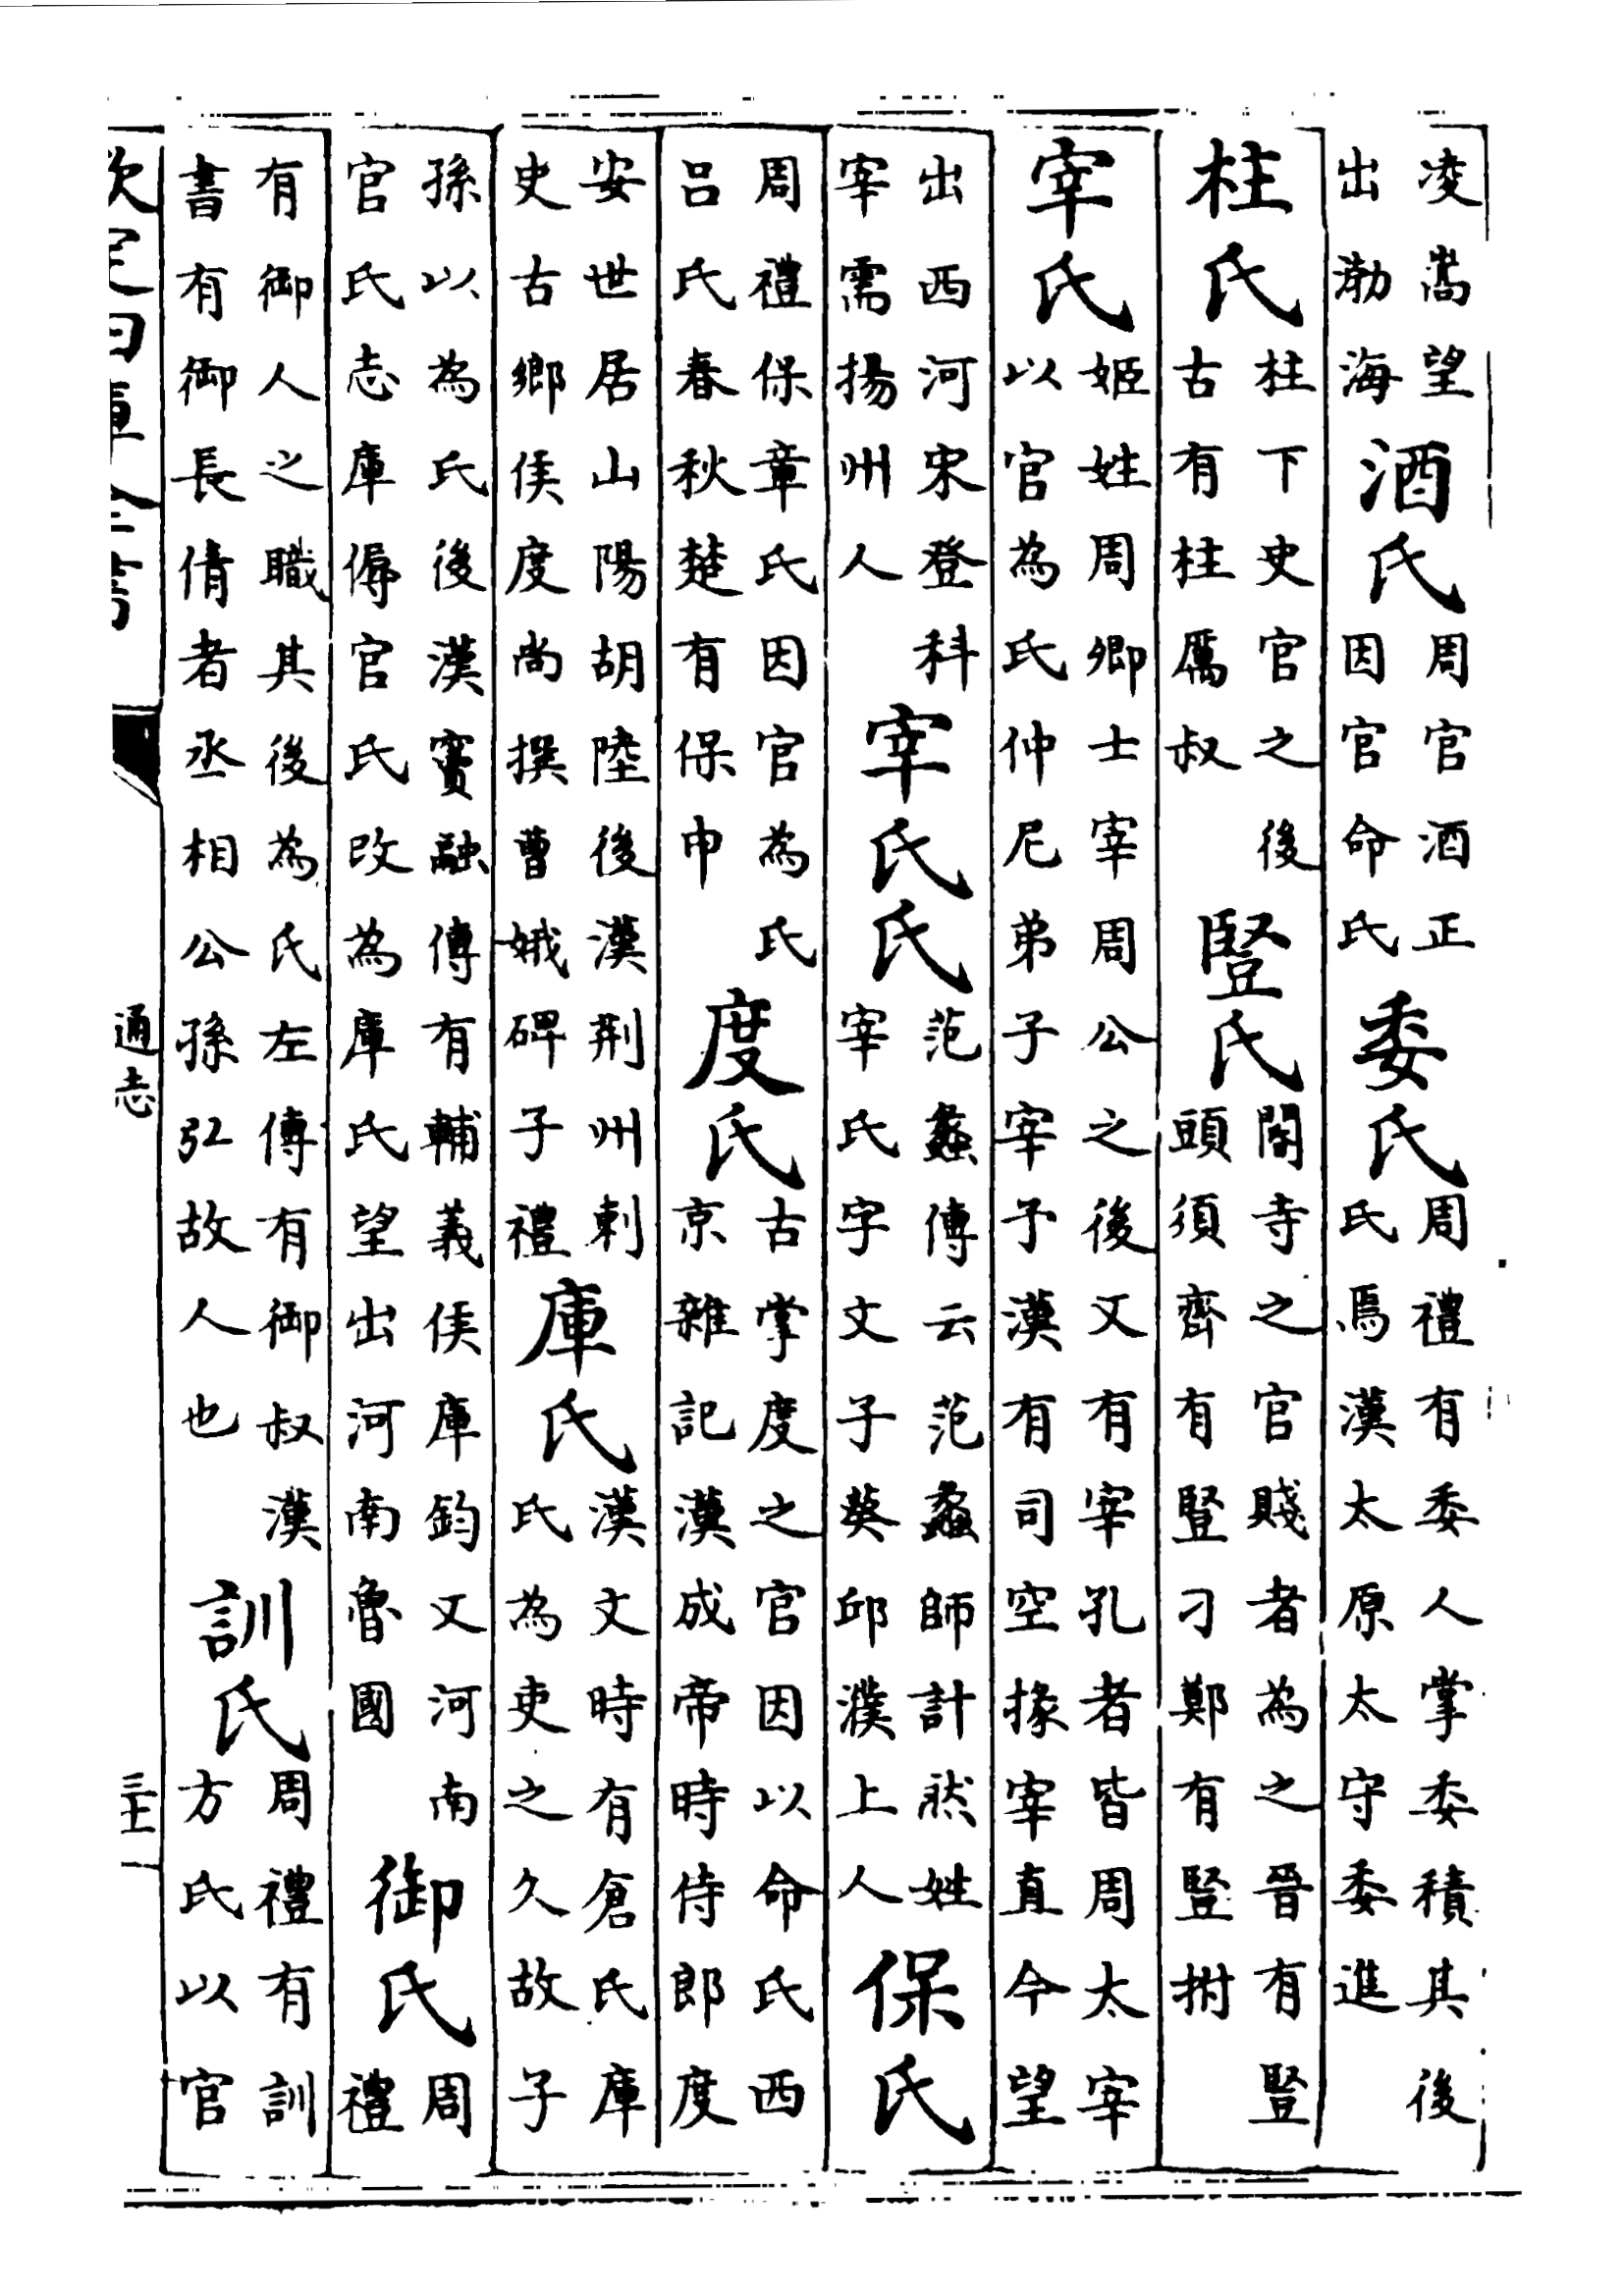 凌嵩望出渤海酒氏周官酒正因官命氏委氏周禮有委人掌委積其後氏焉漢太原太守委進
柱氏柱下史官之後古有柱厲叔豎氏閽寺之官賤者為之晉有豎頭須齊有豎刁鄭有豎拊
宰氏姬姓周卿士宰周公之後又有宰孔者皆周太宰以官為氏仲尼弟子宰予漢有司空掾宰直今望
出西河宋登科宰需揚州人宰氏氏范蠡傳云范蠡師計然姓宰氏字文子葵邱濮上人保氏
周禮保章氏因官為氏吕氏春秋楚有保申度氏古掌度之官因以命氏西京雜記漢成帝時侍郎度
安世居山陽胡陸後漢荆州刺史古鄉侯度尚撰曹娥碑子禮庫氏漢文時有倉氏庫氏為吏之久故子
孫以為氏後漢竇融傳有輔義侯庫鈞又河南官氏志庫傉官氏改為庫氏望出河南魯國御氏周禮
有御人之職其後為氏左傳有御叔漢書有御長倩者丞相公孫弘故人也訓氏周禮有訓方氏以官
欽定四庫全書
通志